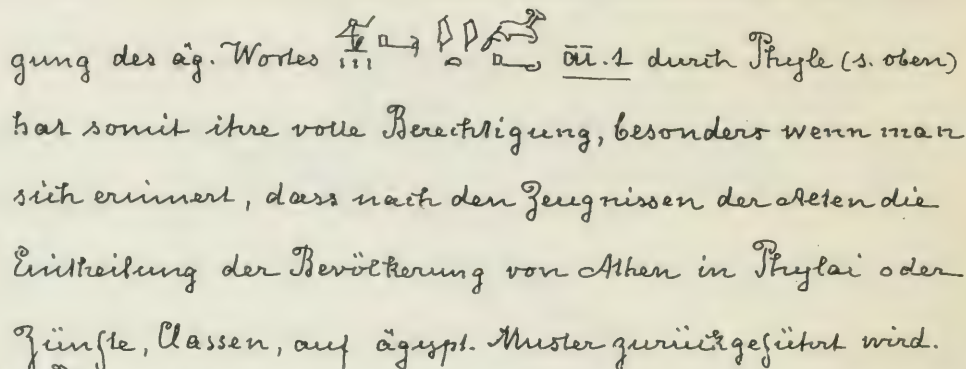 gung des äg. Wortes āū.t durch Phyle (s. oben)
hat somit ihre volle Berechtigung, besonders wenn man
sich erinnert, dass nach den Zeugnissen der Alten die
Eintheilung der Bevölkerung von Athen in Phylai oder
Zünfte, Classen, auf ägypt. Muster zurückgeführt wird.